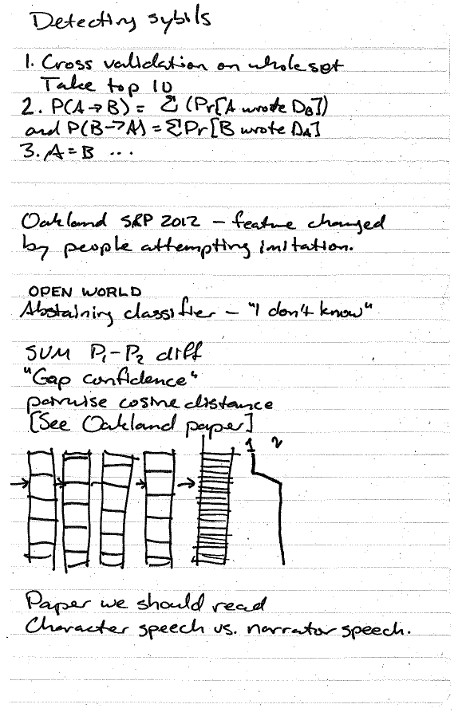 Detecting sybils
1. Cross validation on whole set
Take top 10
2. P(A→B) = Σ (Pr[A wrote D_B])
and P(B→A) = ΣPr[B wrote D_A]
3. A=B ...
Oakland S&P 2012 – feature changed
by people attempting imitation.
OPEN WORLD
Abstaining classifier – "I don't know"
SUM P₁-P₂ diff
"Gap confidence"
pairwise cosine distance
[See Oakland paper]
1 2
Paper we should read
Character speech vs. narrator speech.